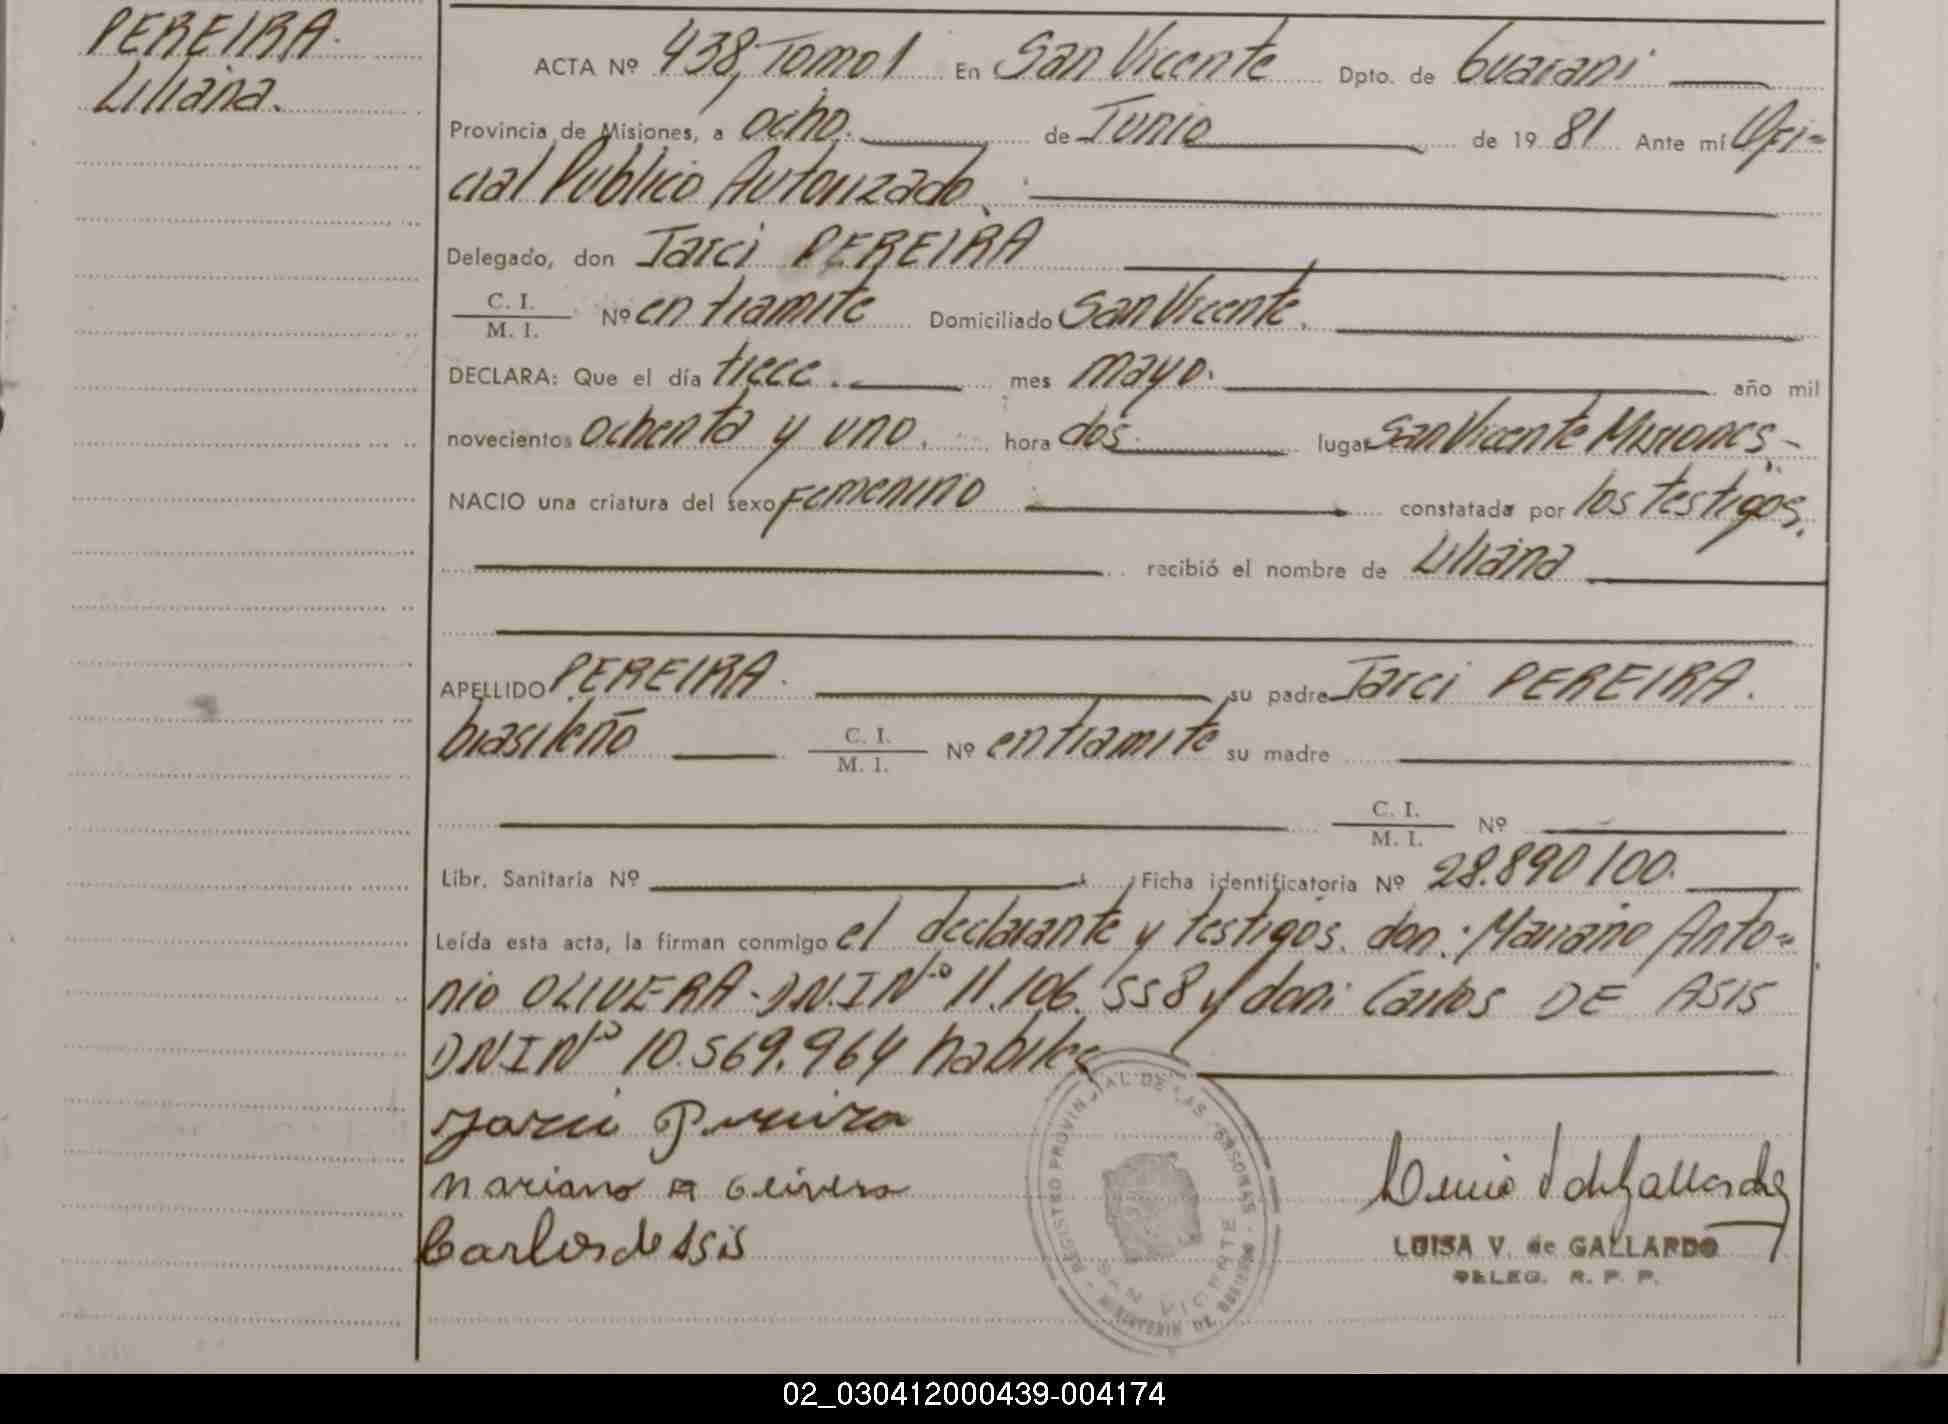 PEREIRA.
Liliana.
ACTA Nº 438, Tomo 1 En San Vicente Dpto. de Guarani
Provincia de Misiones, a ocho. de Junio de 19 81 Ante mí Ofi-
cial Publico Autorizado.
Delegado, don Jarci PEREIRA
C. I.
M. I. Nº en tramite Domiciliado San Vicente.
DECLARA: Que el día trece. mes mayo. año mil
novecientos ochenta y uno. hora dos. lugar San Vicente Misiones-
NACIO una criatura del sexo Femenino constatada por los testigos.
recibió el nombre de Liliana
APELLIDO PEREIRA. su padre Jarci PEREIRA.
brasileño C. I.
M. I. Nº en tramite su madre
C. I.
M. I. Nº
Libr. Sanitaria Nº Ficha identificatoria Nº 28.890100.
Leída esta acta, la firman conmigo el declarante y testigos. don: Mariano Anto-
nio OLIVERA- D.N.I Nº 11.106.558 y don: Carlos DE ASIS
D.N.I Nº 10.569.964 habiles
Jarci Pereira
Mariano A Olivera
Carlos de Asis
REGISTRO PROVINCIAL DE LAS PERSONAS
SAN VICENTE
MINISTERIO DE GOBIERNO
LUISA V. de GALLARDO
DELEG. R. P. P.
02_030412000439-004174